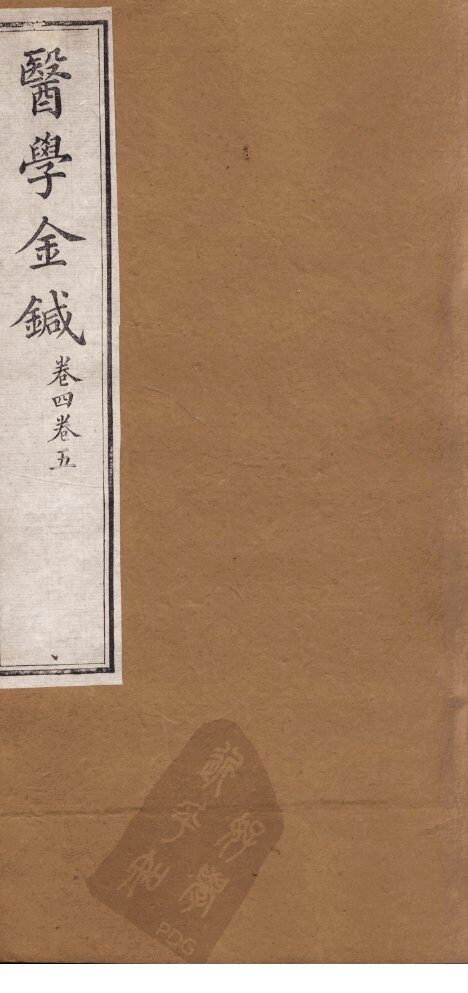 醫學金鍼
卷四卷五
PDG